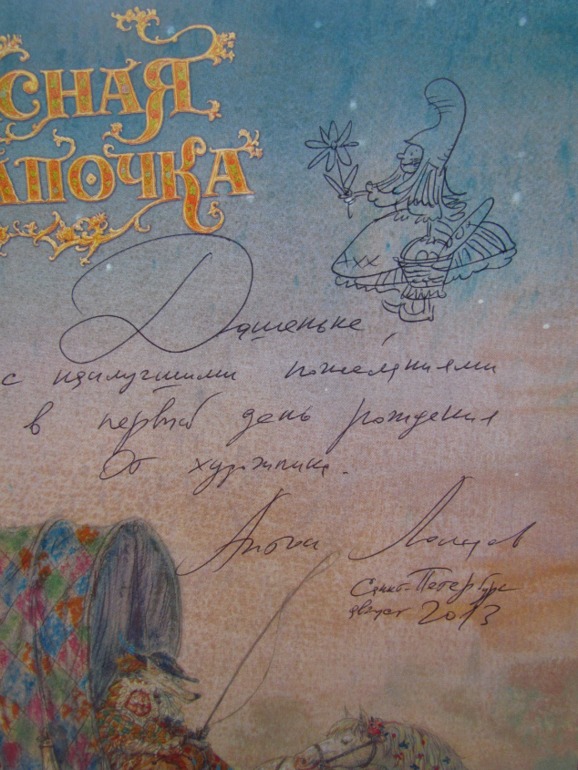 СНАЯ
АПОЧКА
Дашеньке,
с наилучшими пожеланиями
в первый день рождения
От художника.
Антон Ломаев
Санкт-Петербург
август 2013